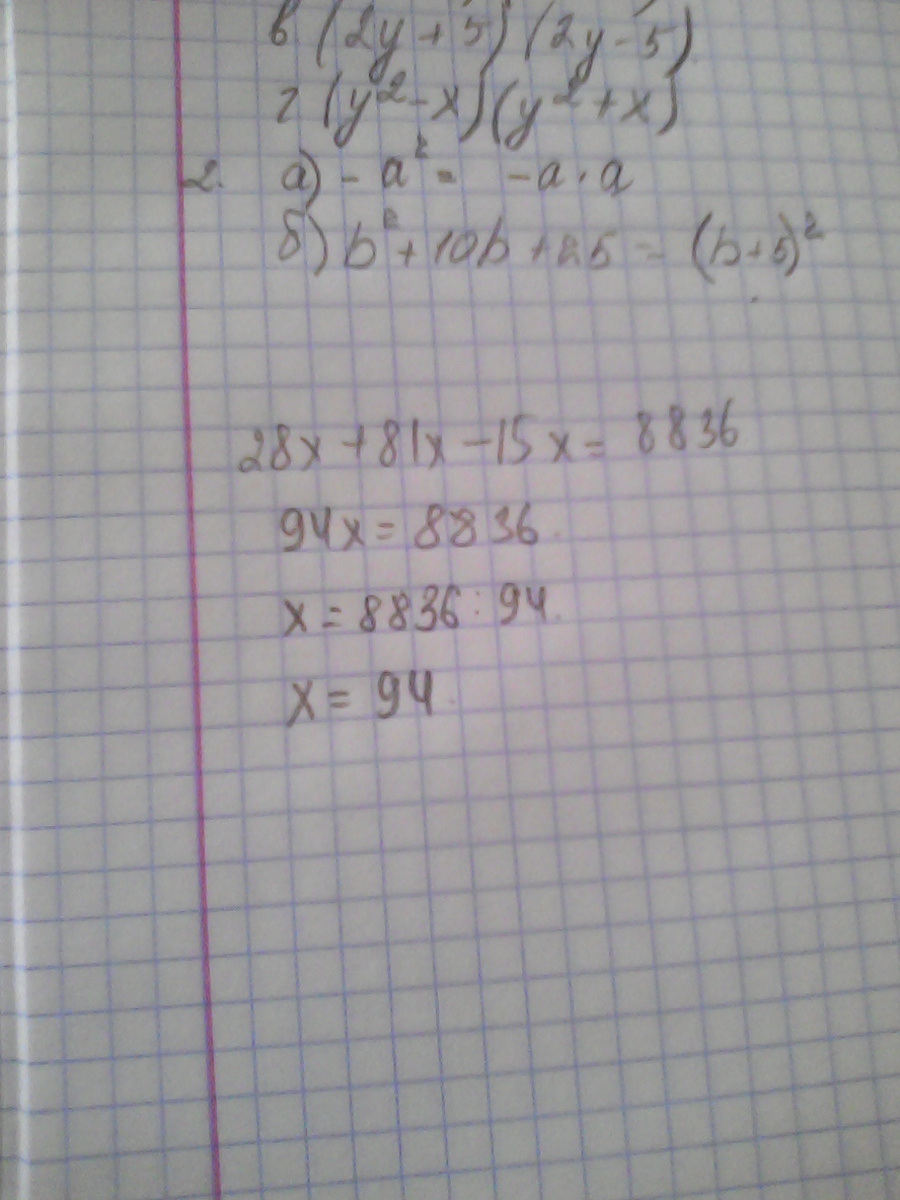 в (2y+5)(2y-5)
г (y²-x)(y²+x)
2. а) -a² = -a·a
б) b²+10b+25 = (b+5)²
28x+81x-15x=8836
94x=8836.
x=8836:94.
x=94.